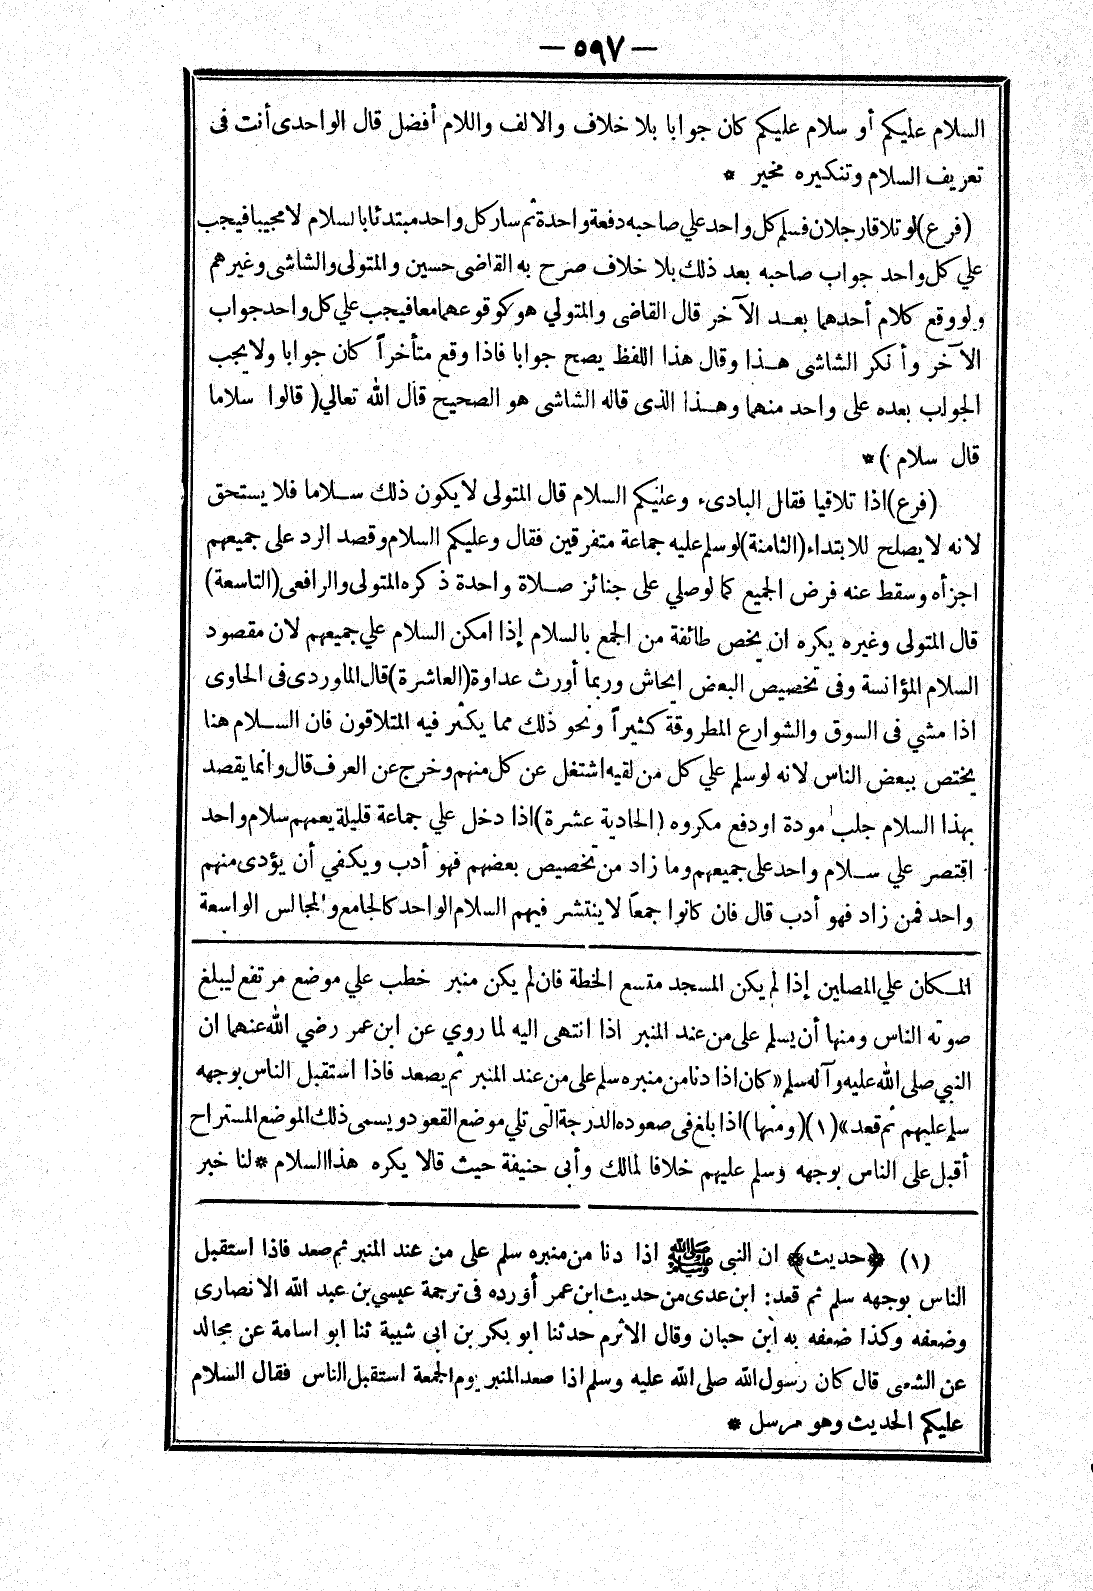 — ٥٩٧ —
السلام عليكم أو سلام عليكم كان جوابا بلا خلاف والالف واللام أفضل قال الواحدى أنت فى
تعريف السلام وتنكيره مخير *
(فرع) لو تلاقا رجلان فسلم كل واحد علي صاحبه دفعة واحدة ثم سار كل واحد مبتدئا بالسلام لا مجيبا فيجب
علي كل واحد جواب صاحبه بعد ذلك بلا خلاف صرح به القاضى حسين والمتولى والشاشى وغيرهم
ولو وقع كلام أحدهما بعد الآخر قال القاضى والمتولي هو كوقوعهما معا فيجب علي كل واحد جواب
الآخر وأنكر الشاشى هذا وقال هذا اللفظ يصح جوابا فاذا وقع متأخراً كان جوابا ولا يجب
الجواب بعده على واحد منهما وهذا الذى قاله الشاشى هو الصحيح قال الله تعالي ( قالوا سلاما
قال سلام ) *
(فرع) اذا تلاقيا فقال البادىء وعليكم السلام قال المتولى لا يكون ذلك سلاما فلا يستحق
لانه لا يصلح للابتداء (الثامنة) لو سلم عليه جماعة متفرقين فقال وعليكم السلام وقصد الرد على جميعهم
اجزأه وسقط عنه فرض الجميع كما لو صلي على جنائز صلاة واحدة ذكره المتولى والرافعى (التاسعة)
قال المتولى وغيره يكره ان يخص طائفة من الجمع بالسلام إذا امكن السلام علي جميعهم لان مقصود
السلام المؤانسة وفى تخصيص البعض ايحاش وربما أورث عداوة (العاشرة) قال الماوردى فى الحاوى
اذا مشي فى السوق والشوارع المطروقة كثيراً ونحو ذلك مما يكثر فيه المتلاقون فان السلام هنا
يختص ببعض الناس لانه لو سلم علي كل من لقيه اشتغل عن كل منهم وخرج عن العرف قال وانما يقصد
بهذا السلام جلب مودة اودفع مكروه (الحادية عشرة) اذا دخل علي جماعة قليلة يعمهم سلام واحد
اقتصر علي سلام واحد على جميعهم وما زاد من تخصيص بعضهم فهو أدب ويكفي أن يؤدى منهم
واحد فمن زاد فهو أدب قال فان كانوا جمعا لا ينتشر فيهم السلام الواحد كالجامع والمجالس الواسعة
المكان علي المصلين إذا لم يكن المسجد متسع الخطة فان لم يكن منبر خطب علي موضع مرتفع ليبلغ
صوته الناس ومنها أن يسلم على من عند المنبر اذا انتهى اليه لما روي عن ابن عمر رضي الله عنهما ان
النبي صلى الله عليه وآله سلم « كان اذا دنا من منبره سلم على من عند المنبر ثم يصعد فاذا استقبل الناس بوجهه
سلم عليهم ثم قعد » (١) (ومنها) اذا بلغ فى صعوده الدرجة التى تلي موضع القعود ويسمى ذلك الموضع المستراح
أقبل على الناس بوجهه وسلم عليهم خلافا لمالك وأبى حنيفة حيث قالا يكره هذا السلام * لنا خبر
(١) ﴿ حديث ﴾ ان النبى ﷺ اذا دنا من منبره سلم على من عند المنبر ثم صعد فاذا استقبل
الناس بوجهه سلم ثم قعد : ابن عدى من حديث ابن عمر أورده فى ترجمة عيسي بن عبد الله الانصارى
وضعفه وكذا ضعفه به ابن حبان وقال الاثرم حدثنا ابو بكر بن ابى شيبة ثنا ابو اسامة عن مجالد
عن الشعبى قال كان رسول الله صلى الله عليه وسلم اذا صعد المنبر يوم الجمعة استقبل الناس فقال السلام
عليكم الحديث وهو مرسل *